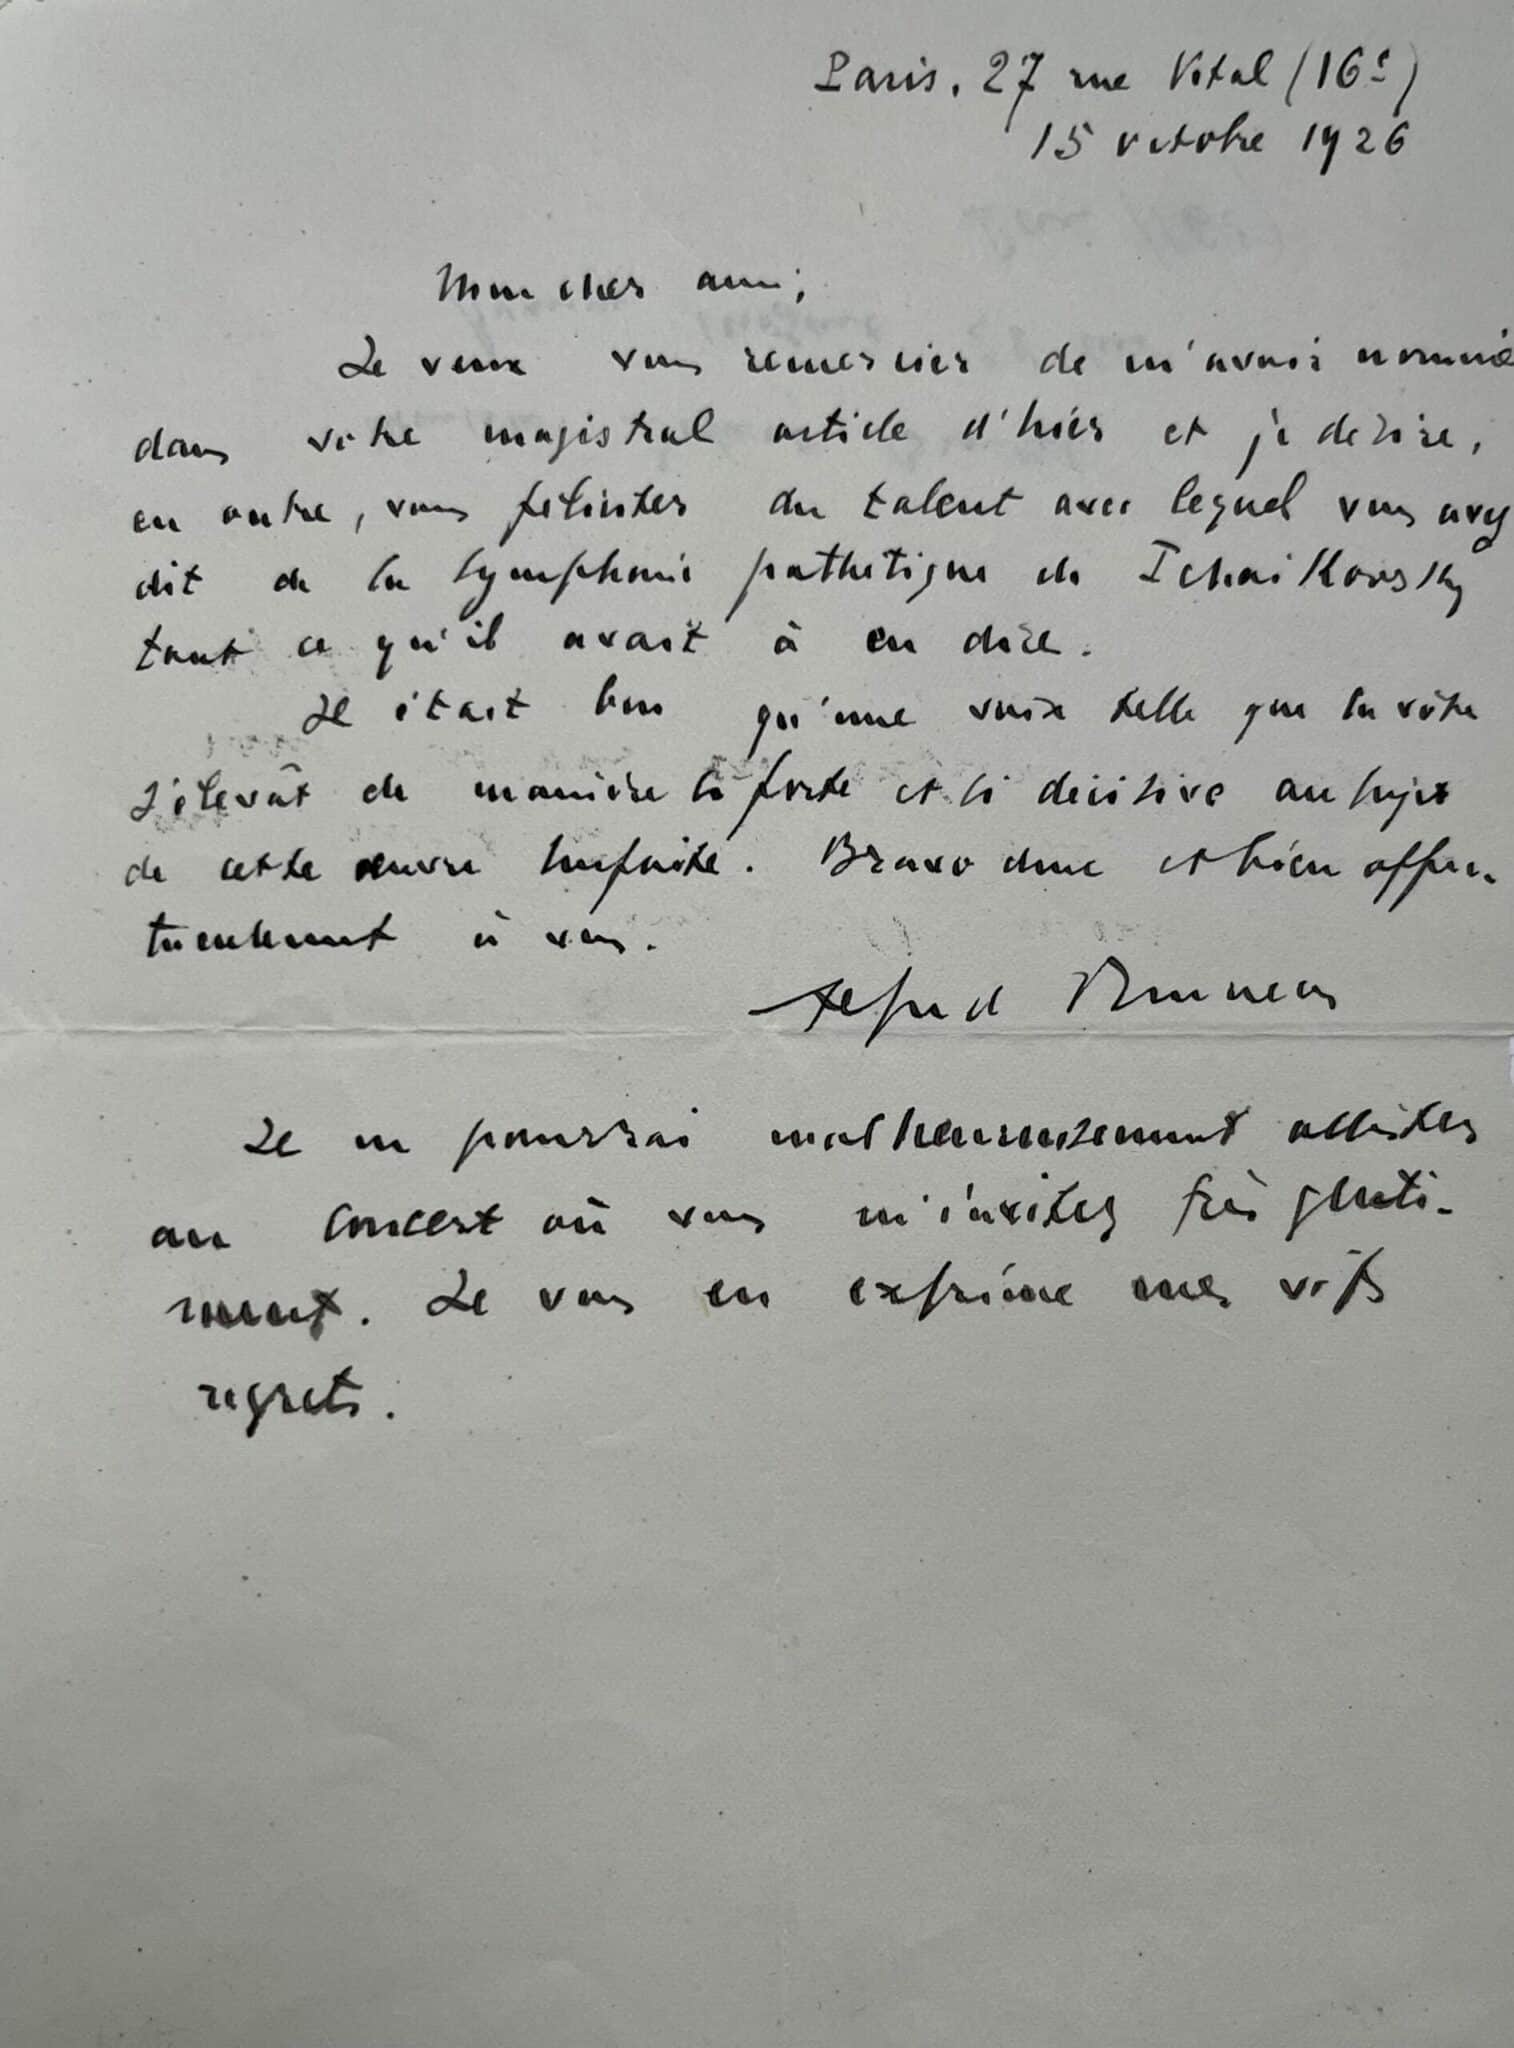 Paris. 27 rue Vital (16e)
15 octobre 1926
Mon cher ami,
Je veux vous remercier de m'avoir nommé
dans votre magistral article d'hier et je désire,
en outre, vous féliciter du talent avec lequel vous avez
dit de la Symphonie pathétique de Tchaïkovsky
tout ce qu'il avait à en dire.
Il était bon qu'une voix telle que la vôtre
s'élevât de manière si forte et si décisive au sujet
de cette œuvre surfaite. Bravo donc et bien affec-
tueusement à vous.
Alfred Bruneau
Je ne pourrai malheureusement assister
au concert où vous m'invitez très genti-
ment. Je vous en exprime mes vifs
regrets.